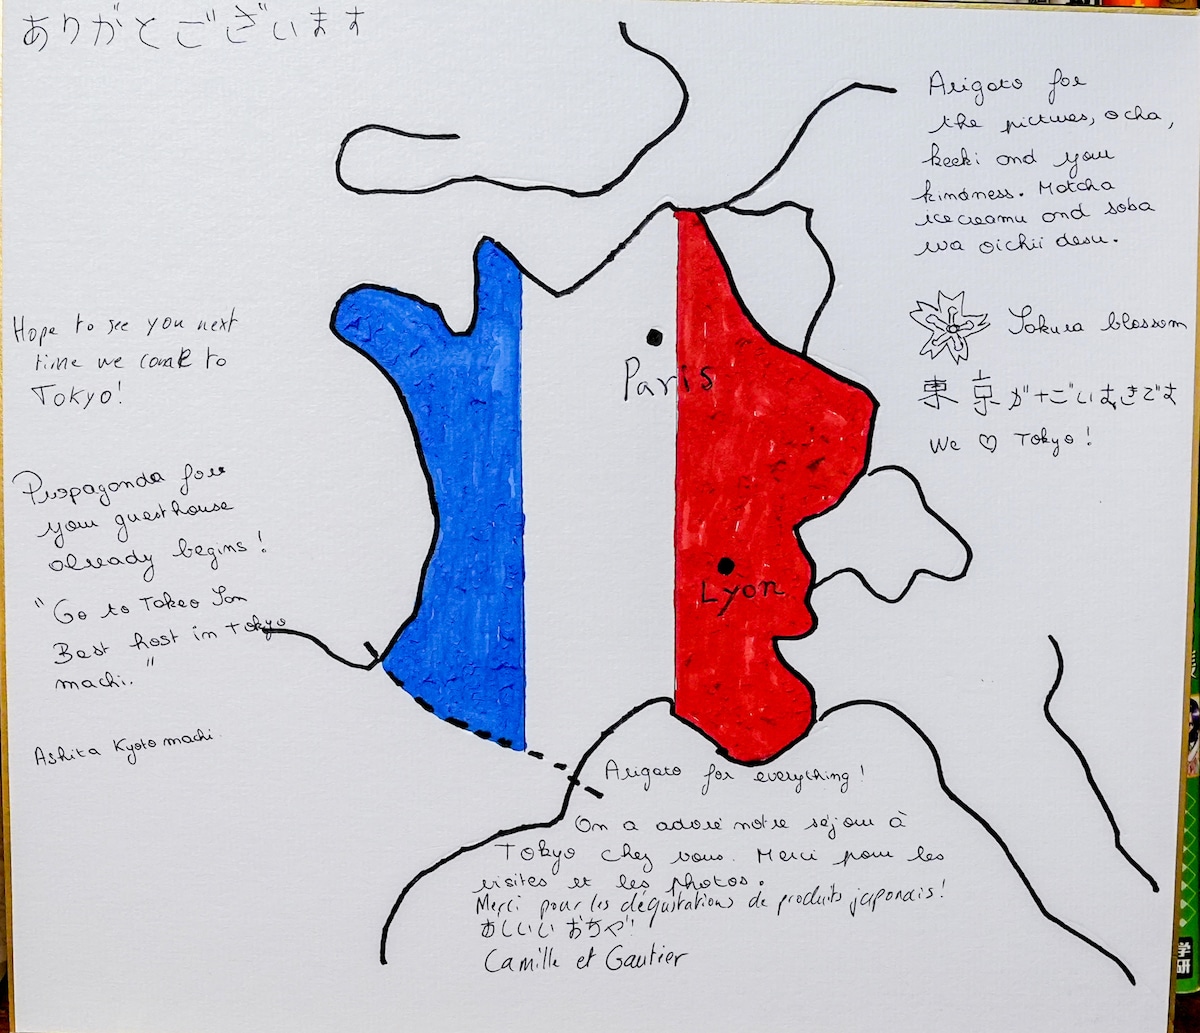 ありがとございます
Arigato for
the pictures, ocha,
keeki and your
kindness. Matcha
icecreamu and soba
wa oichii desu.
Sakura blossom
東京が
We ♡ Tokyo!
Hope to see you next
time we come to
Tokyo!
Propaganda for
your guesthouse
already begins!
"Go to Takeo San
Best host in Tokyo
machi."
Ashita Kyoto machi.
Paris
Lyon
Arigato for everything!
On a adoré notre séjour à
Tokyo chez vous. Merci pour les
visites et les photos.
Merci pour les dégustations de produits japonais!
おしいい おちゃ!
Camille et Gautier
学
研